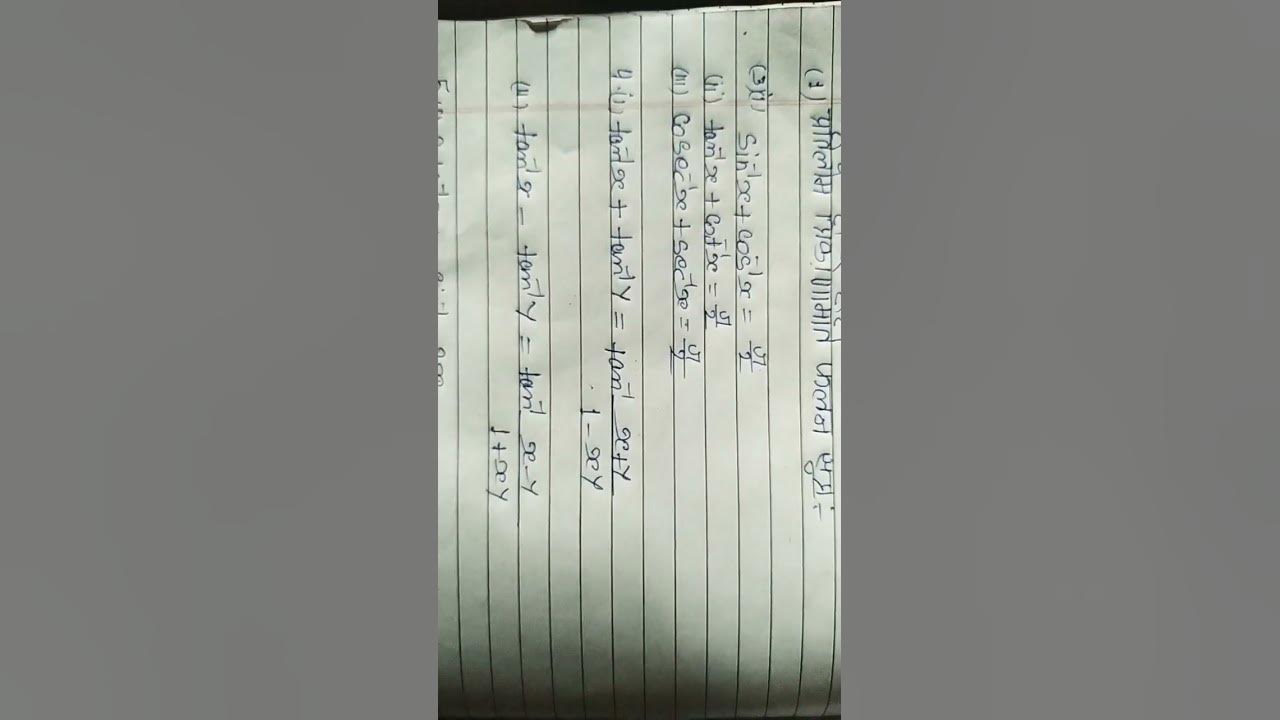 (1) प्रतिलोम त्रिकोणमिति फलन सूत्र :-
(3)(i) sin⁻¹x + cos⁻¹x = π/2
(ii) tan⁻¹x + cot⁻¹x = π/2
(iii) cosec⁻¹x + sec⁻¹x = π/2
4.(i) tan⁻¹x + tan⁻¹y = tan⁻¹ x+y/1-xy
(ii) tan⁻¹x - tan⁻¹y = tan⁻¹ x-y/1+xy